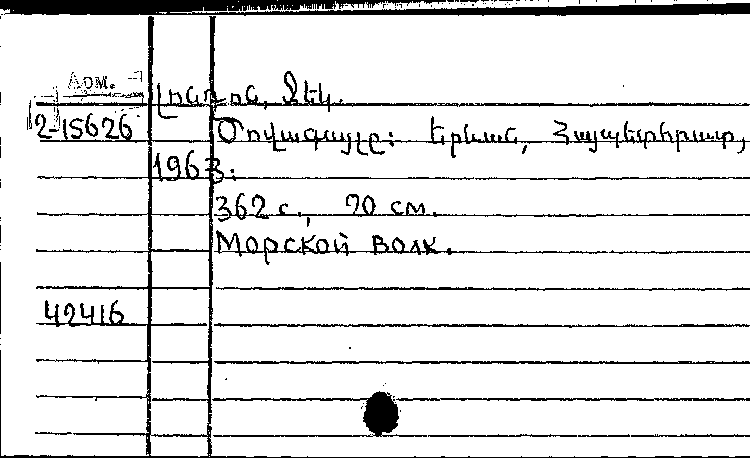 Арм.
Լոնդոն, Ջեկ.
2-15626
Ծովագայլը: Երևան, Հայպետհրատ,
1963:
362 с., 20 см.
Морской волк.
42416